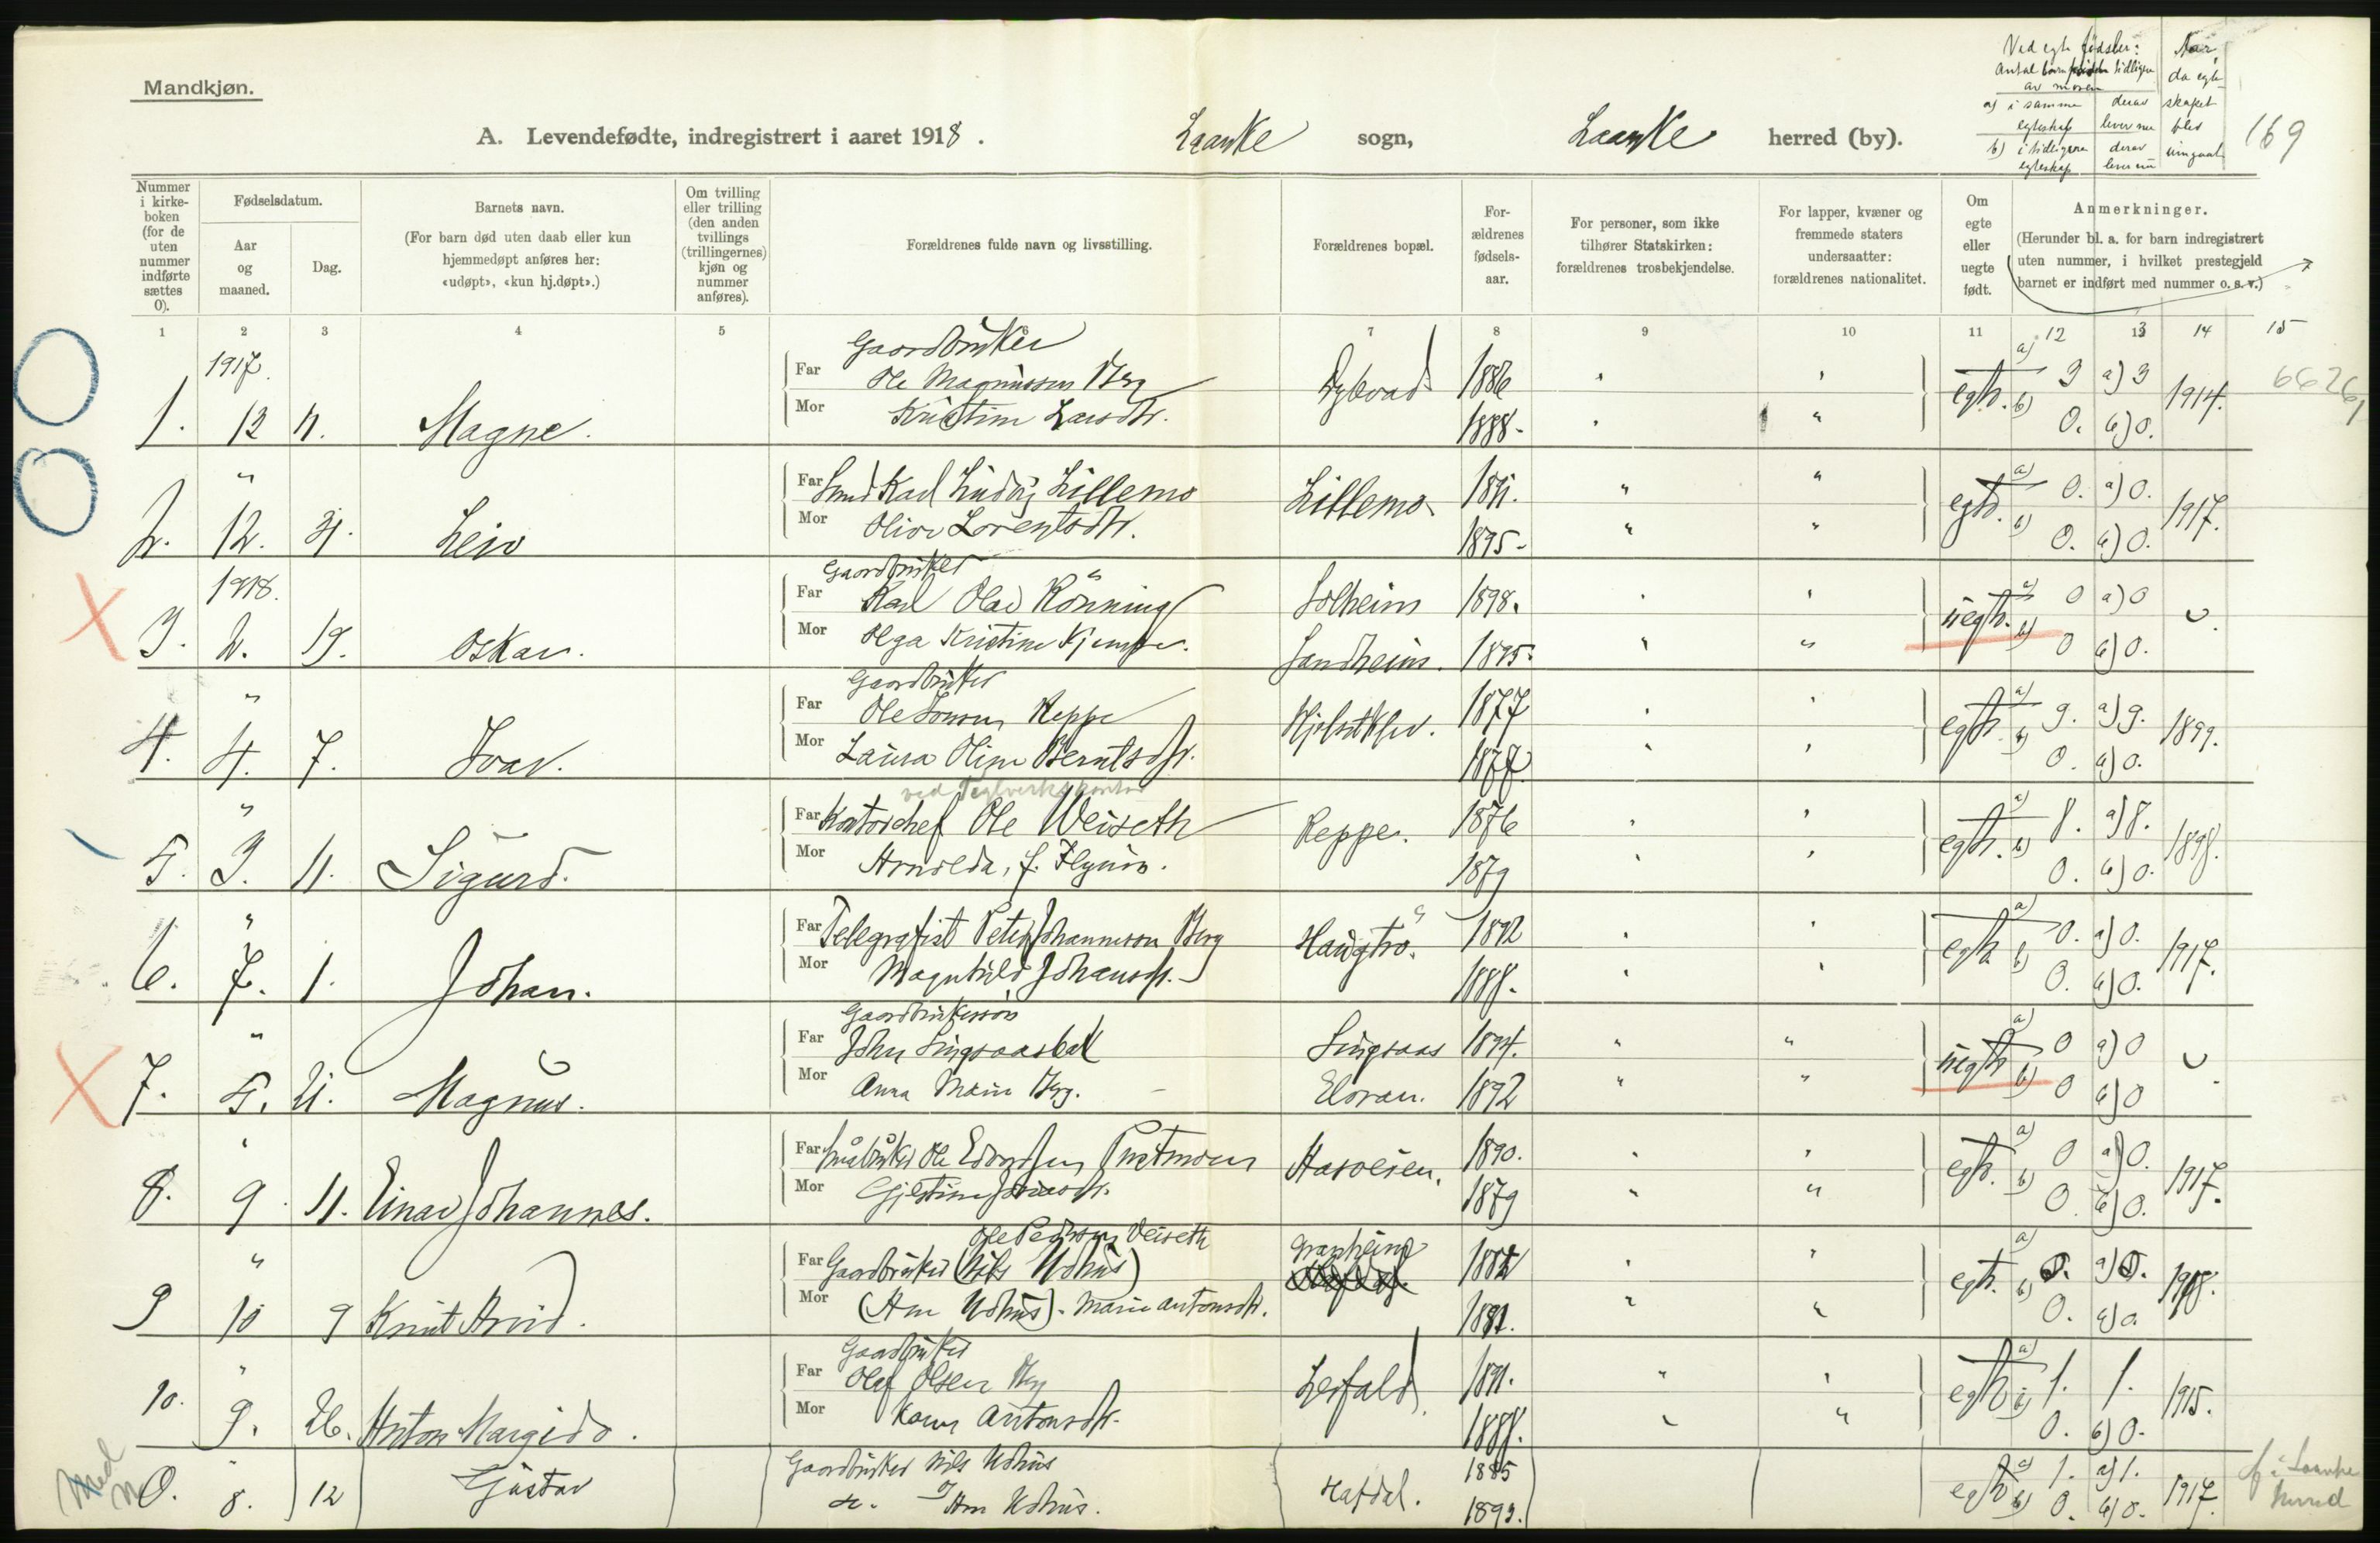 Mandkjøn.
A. Levendefødte, indregistrert i aaret 1918. Laanke sogn, Laanke herred (by).
Ved egte fødsler: Antal børn tidligere av moren
a) i samme egteskap derav lever nu
b) i tidligere egteskap derav lever nu
Aar, da egteskapet blev indgaat
169
Nummer i kirkeboken (for de uten nummer indførte sættes 0).
Fødselsdatum.
Aar og maaned.
Dag.
Barnets navn.
(For barn død uten daab eller kun hjemmedøpt anføres her: «udøpt», «kun hj.døpt».)
Om tvilling eller trilling (den anden tvillings (trillingernes) kjøn og nummer anføres).
Forældrenes fulde navn og livsstilling.
Forældrenes bopæl.
Forældrenes fødselsaar.
For personer, som ikke tilhører Statskirken: forældrenes trosbekjendelse.
For lapper, kvæner og fremmede staters undersaatter: forældrenes nationalitet.
Om egte eller uegte født.
Anmerkninger.
(Herunder bl. a. for barn indregistrert uten nummer, i hvilket prestegjeld barnet er indført med nummer o. s. v.)
1 2 3 4 5 6 7 8 9 10 11 12 13 14 15
1917.
1. 12 11. Magne.
Far Gaardbruker Ole Magnussen Berg Dybvad 1886 " "
Mor Kristine Larsdtr. 1888. " "
egte. a) 3 a) 3 b) 0. b) 0. 1914.
6626
2. " 12. 31. Leiv
Far Smed Karl Ludvig Lillemo Lillemo 1891. " "
Mor Olive Lorentsdtr. 1895. " "
egte. a) 0. a) 0. b) 0. b) 0. 1917.
1918.
3. 2. 19. Oskar.
Far Gaardbruker Karl Olav Rönning Solheim 1898. " "
Mor Olga Kristine Kjempe. Sandheim. 1895. " "
uegte. a) 0 a) 0 b) 0 b) 0.
4. " 4. 7. Ivar.
Far Gaardbruker Ole Reppe 1877 " "
Mor Laura Oline Berntsdtr. 1877. " "
egte a) 9. a) 9. b) 0. b) 0. 1899.
5. " 3. 11. Sigurd.
ved Teglverkskontor
Far Kontorchef Ole Weiseth Reppe. 1876 " "
Mor Arnolda, f. 1879 " "
egte. a) 8. a) 8. b) 0. b) 0. 1898.
6. " 7. 1. Johan.
Far Telegrafist Peter Johannesen Berg Haugtrö. 1892 " "
Mor Magnhild Johansdtr. 1888. " "
egte a) 0. a) 0. b) 0. b) 0. 1917.
7. " 5. 21. Magnus.
Far Gaardbrukersøn John Singsaasbak Singsaas 1894. " "
Mor Anna Marie Berg. Elvran. 1892 " "
uegte a) 0 a) 0 b) 0 b) 0
8. " 9. 11. Einar Johannes.
Far Småbruker Ole 1890. " "
Mor 1879 " "
egte. a) 0 a) 0. b) 0. b) 0. 1917.
9 " 10 9 Knut Arvid.
Ole Pedersen Veiseth
Far Gaardbruker (Nils Udhus) Granheim 1882 " "
Mor (Am Udhus). Marie Antonsdtr. 1881. " "
egte. a) 0. a) 0. b) 0. b) 0. 1918.
10. " 9. 26. Anton Margido.
Far Gaardbruker Olaf Olsen Berg Leifald 1891. " "
Mor Karen Antonsdtr. 1888. " "
egte a) 1. 1. b) 0. b) 0. 1915.
Med
0. " 8. 12 Gustav
Gaardbruker Nils Udhus Hafdal. 1885
og Am Udhus. 1893.
egte a) 1. a) 1. b) 0. b) 0. 1917.
f. i Laanke herred